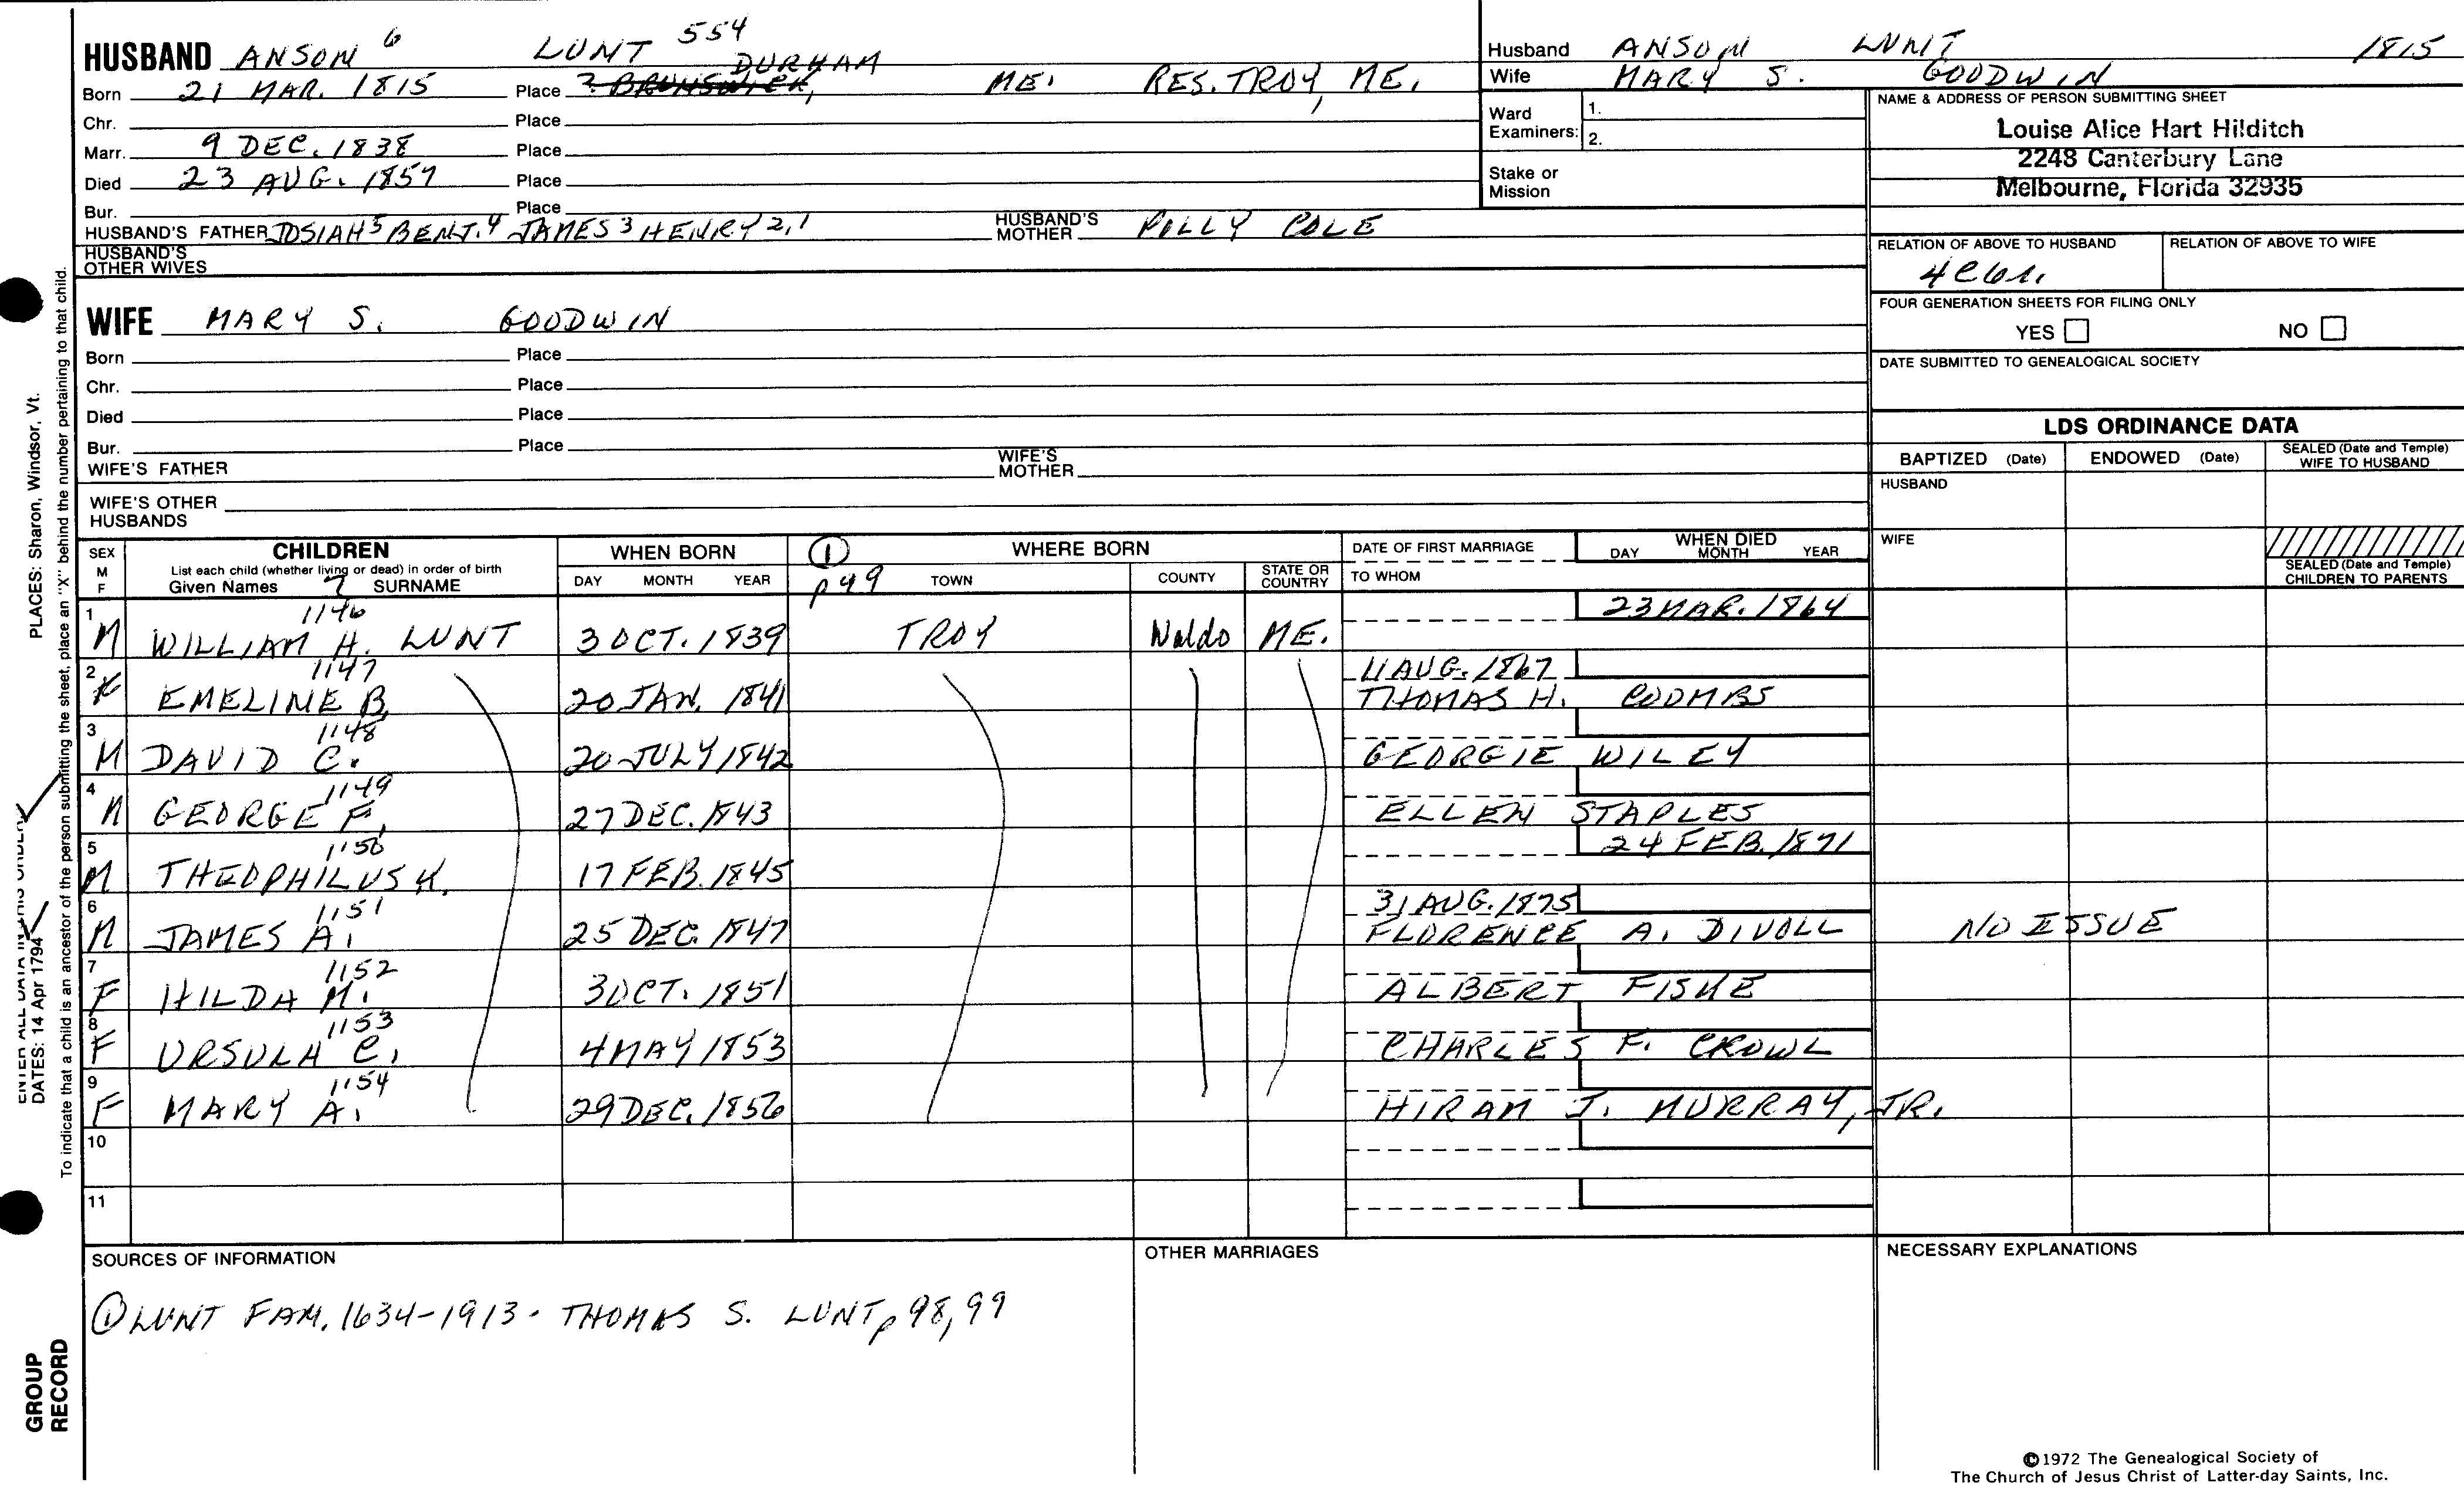 HUSBAND ANSON 6 LUNT 554
DURHAM
Born 21 MAR. 1815 Place ? BRUNSWICK, ME. RES. TROY, ME.
Chr. Place
Marr. 9 DEC. 1838 Place
Died 23 AUG. 1857 Place
Bur. Place
HUSBAND'S FATHER JOSIAH 5 BENJ. 4 JAMES 3 HENRY 2,1 HUSBAND'S MOTHER POLLY COLE
HUSBAND'S OTHER WIVES
WIFE MARY S. GOODWIN
Born Place
Chr. Place
Died Place
Bur. Place
WIFE'S FATHER WIFE'S MOTHER
WIFE'S OTHER HUSBANDS
Husband ANSON LUNT 1815
Wife MARY S. GOODWIN
Ward Examiners: 1.
2.
Stake or Mission
NAME & ADDRESS OF PERSON SUBMITTING SHEET
Louise Alice Hart Hilditch
2248 Canterbury Lane
Melbourne, Florida 32935
RELATION OF ABOVE TO HUSBAND RELATION OF ABOVE TO WIFE
FOUR GENERATION SHEETS FOR FILING ONLY
YES NO
DATE SUBMITTED TO GENEALOGICAL SOCIETY
LDS ORDINANCE DATA
BAPTIZED (Date) ENDOWED (Date) SEALED (Date and Temple) WIFE TO HUSBAND
HUSBAND
WIFE
SEALED (Date and Temple) CHILDREN TO PARENTS
SEX M F
CHILDREN
List each child (whether living or dead) in order of birth
Given Names 7 SURNAME
WHEN BORN
DAY MONTH YEAR
① p 49
WHERE BORN
TOWN COUNTY STATE OR COUNTRY
DATE OF FIRST MARRIAGE
TO WHOM
WHEN DIED
DAY MONTH YEAR
1 1146 23 MAR. 1864
M WILLIAM H. LUNT 3 OCT. 1839 TROY Waldo ME.
2 1147 11 AUG. 1867
EMELINE B. 20 JAN. 1841 THOMAS H. COOMBS
3 1148
M DAVID C. 20 JULY 1842 GEORGIE WILEY
4 1149
M GEORGE F. 27 DEC. 1843 ELLEN STAPLES
5 1150 24 FEB. 1871
M THEOPHILUS K. 17 FEB. 1845
6 1151 31 AUG. 1875
M JAMES A. 25 DEC. 1847 FLORENCE A. DIVOLL NO ISSUE
7 1152
F HILDA M. 3 OCT. 1851 ALBERT FISKE
8 1153
F URSULA C. 4 MAY 1853 CHARLES F. CROWL
9 1154
F MARY A. 29 DEC. 1856 HIRAM J. MURRAY, JR.
10
11
SOURCES OF INFORMATION
① LUNT FAM. 1634-1913 - THOMAS S. LUNT, p 98, 99
OTHER MARRIAGES
NECESSARY EXPLANATIONS
©1972 The Genealogical Society of
The Church of Jesus Christ of Latter-day Saints, Inc.
PLACES: Sharon, Windsor, Vt.
ENTER ALL DATA IN THIS ORDER:
DATES: 14 Apr 1794
To indicate that a child is an ancestor of the person submitting the sheet, place an "X" behind the number pertaining to that child.
GROUP
RECORD